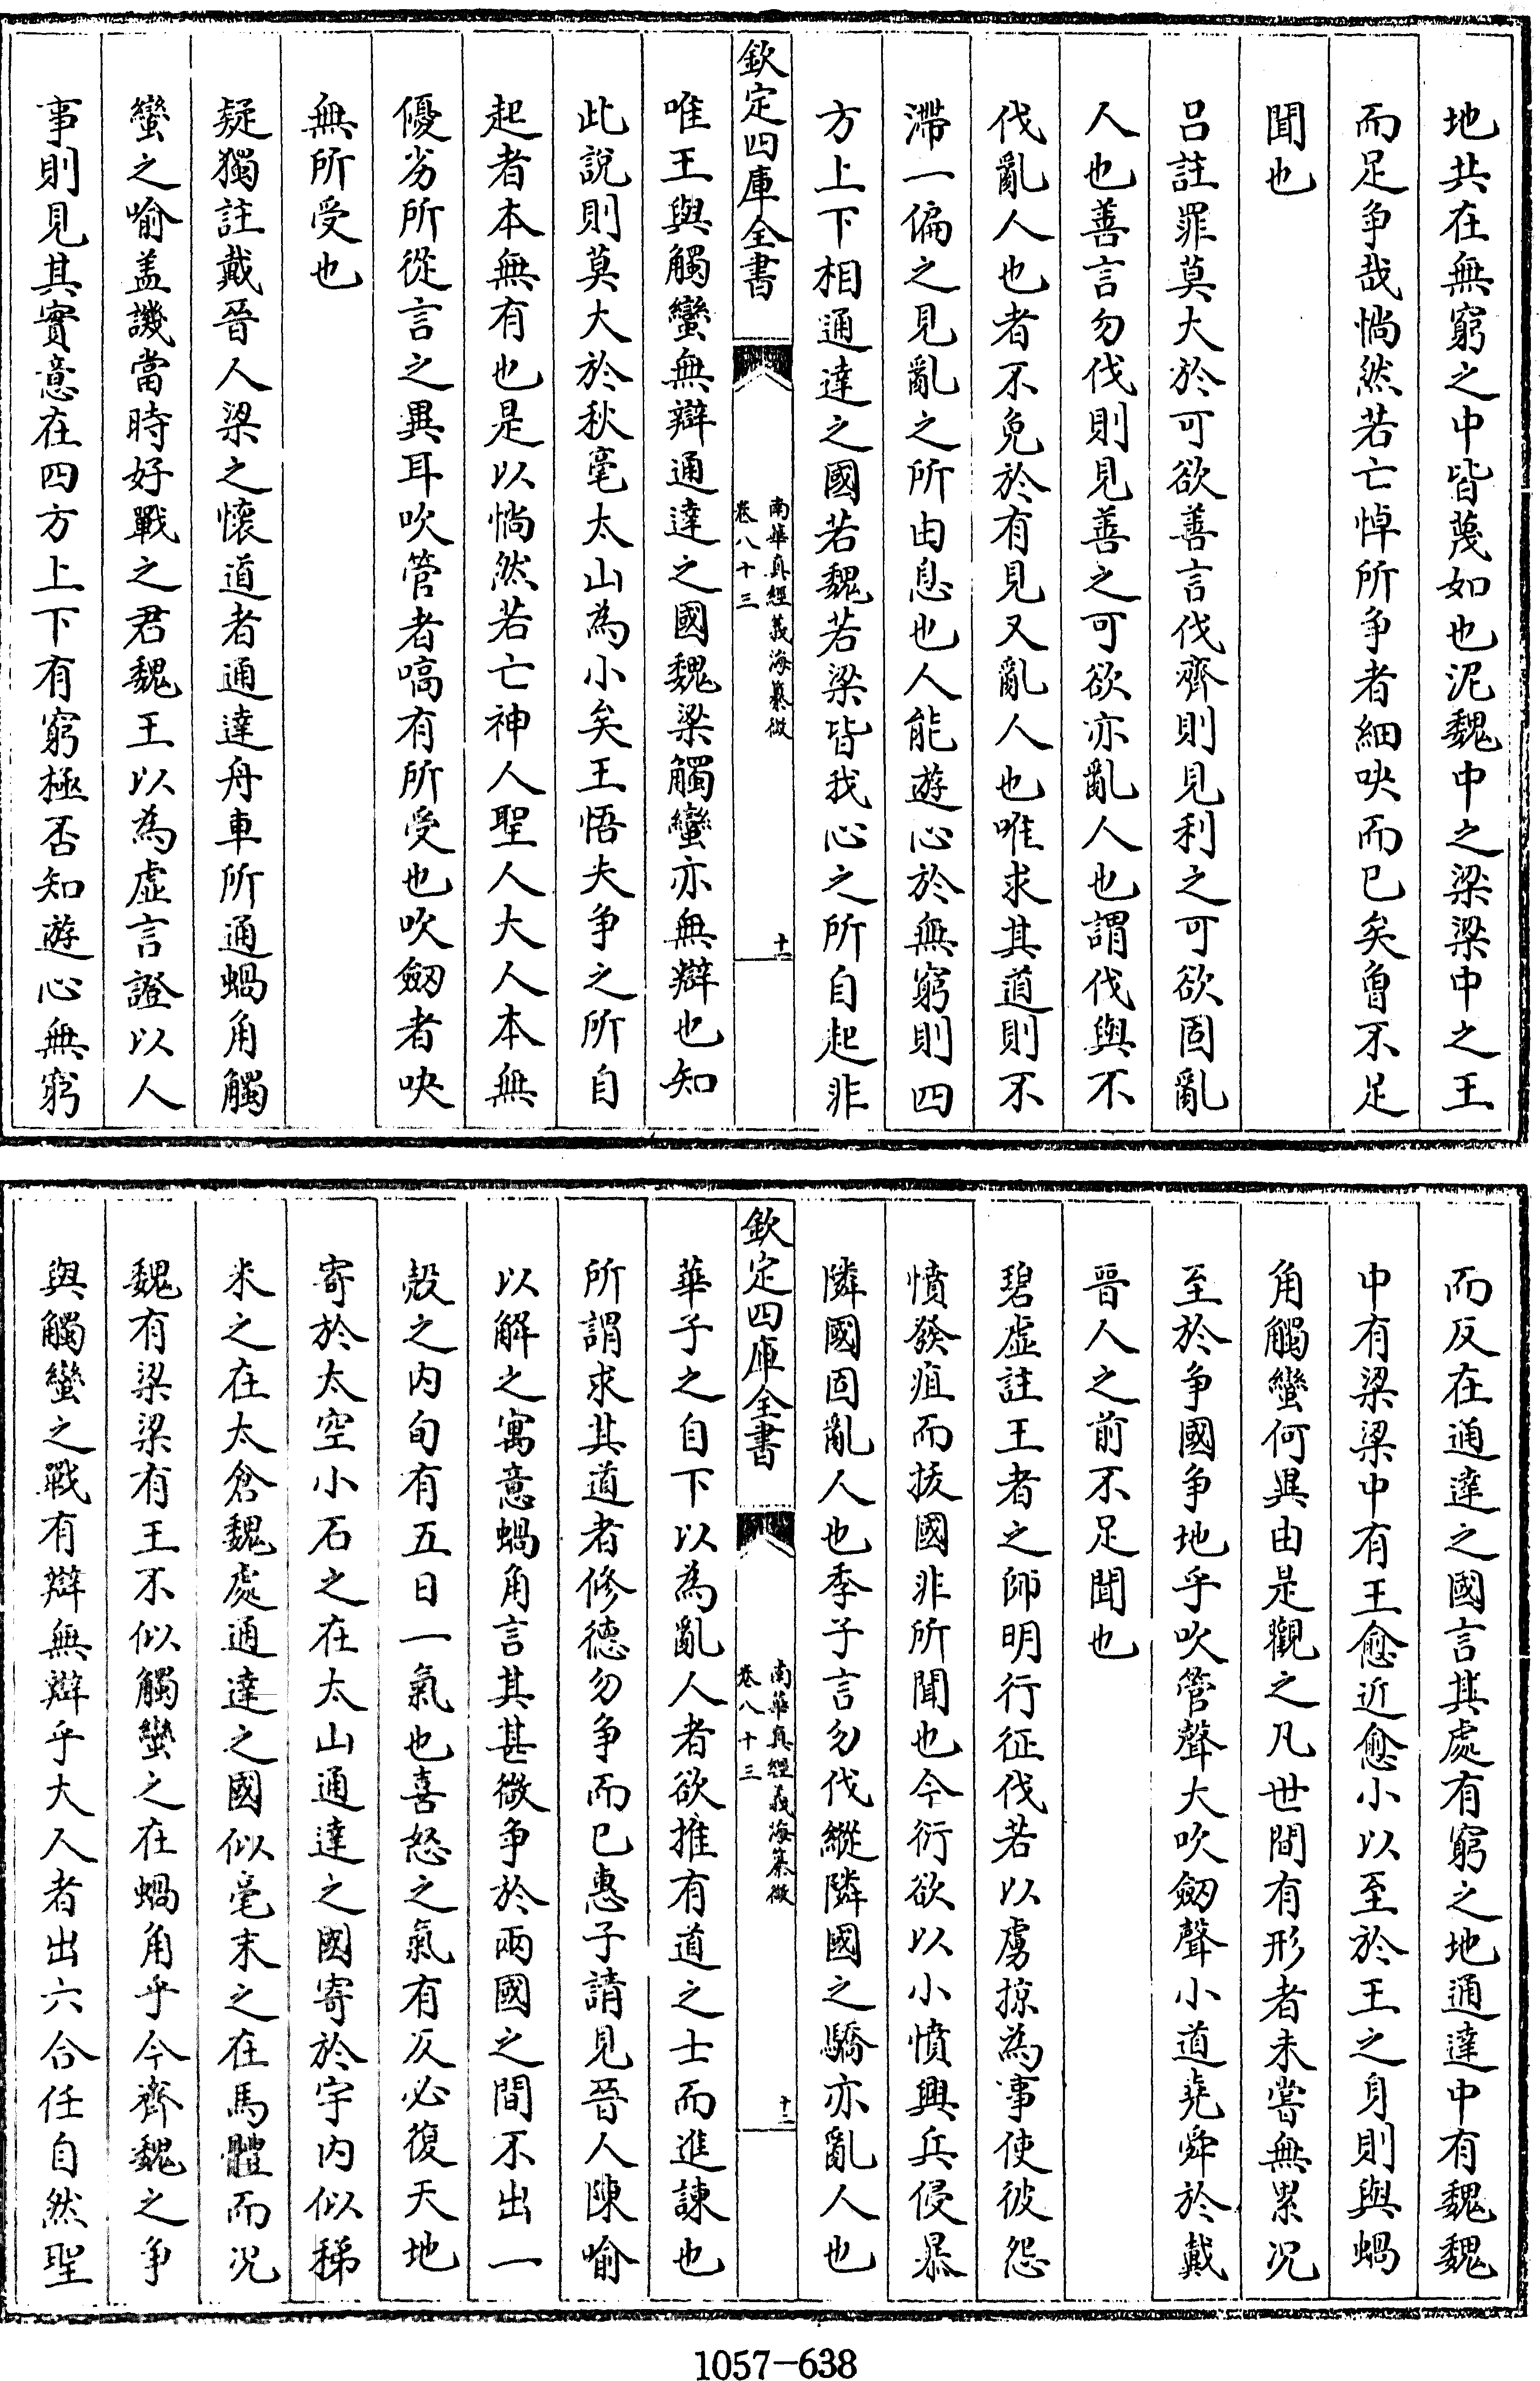 地共在無窮之中皆蔑如也泥魏中之梁梁中之王
而足争哉惝然若亡悼所争者細吷而已矣曾不足
聞也
吕註罪莫大於可欲善言伐齊則見利之可欲固亂
人也善言勿伐則見善之可欲亦亂人也謂伐與不
伐亂人也者不免於有見又亂人也唯求其道則不
滯一偏之見亂之所由息也人能遊心於無窮則四
方上下相通達之國若魏若梁皆我心之所自起非
欽定四庫全書
南華真經義海纂微
卷八十三
十一
唯王與觸蠻無辯通達之國魏梁觸蠻亦無辯也知
此說則莫大於秋毫太山為小矣王悟夫争之所自
起者本無有也是以惝然若亡神人聖人大人本無
優劣所從言之異耳吹管者嗃有所受也吹劔者吷
無所受也
疑獨註戴晉人梁之懷道者通達舟車所通蝸角觸
蠻之喻盖譏當時好戰之君魏王以為虚言證以人
事則見其實意在四方上下有窮極否知遊心無窮
而反在通達之國言其處有窮之地通達中有魏魏
中有梁梁中有王愈近愈小以至於王之身則與蝸
角觸蠻何異由是觀之凡世間有形者未嘗無累况
至於争國争地乎吹管聲大吹劔聲小道堯舜於戴
晉人之前不足聞也
碧虚註王者之師明行征伐若以虜掠為事使彼怨
憤發疽而拔國非所聞也今衍欲以小憤興兵侵暴
隣國固亂人也季子言勿伐縱隣國之驕亦亂人也
欽定四庫全書
南華真經義海纂微
卷八十三
十二
華子之自下以為亂人者欲推有道之士而進諫也
所謂求其道者修德勿争而已惠子請見晉人陳喻
以解之寓意蝸角言其甚微争於兩國之間不出一
殻之内旬有五日一氣也喜怒之氣有仄必復天地
寄於太空小石之在太山通達之國寄於宇内似稊
米之在太倉魏處通達之國似毫末之在馬體而况
魏有梁梁有王不似觸蠻之在蝸角乎今齊魏之争
與觸蠻之戰有辯無辯乎大人者出六合任自然聖
1057-638